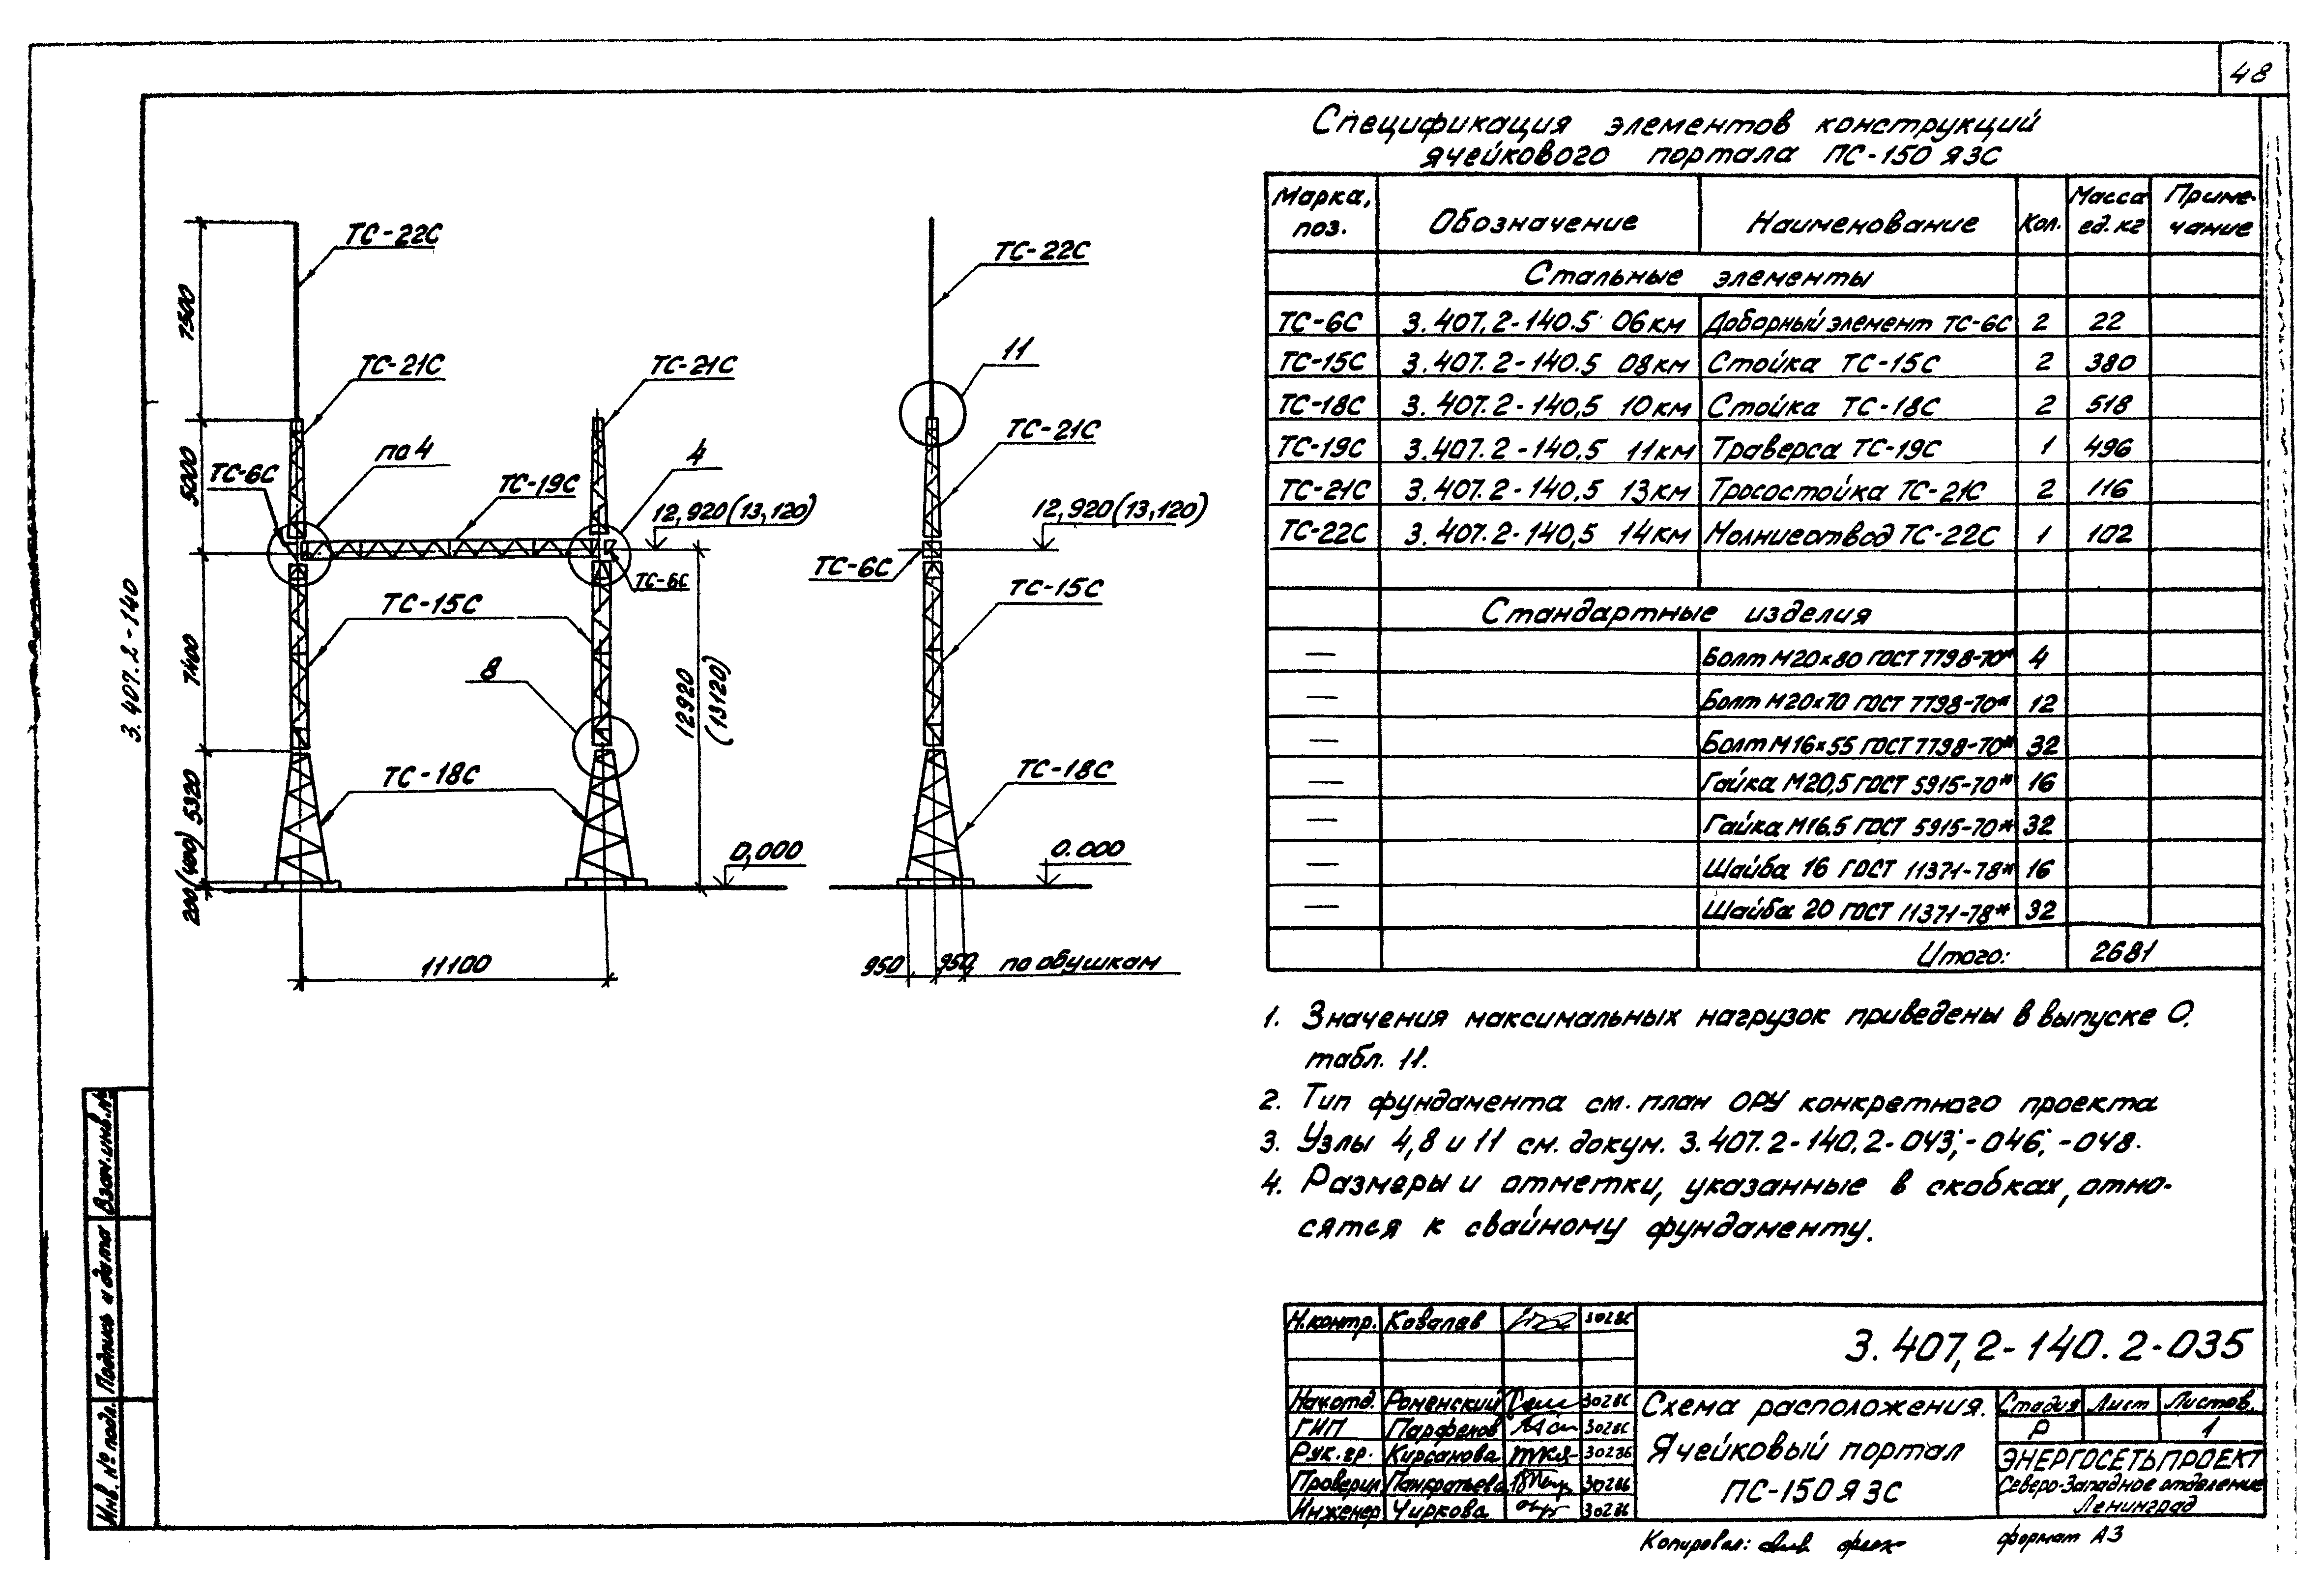 48
Спецификация элементов конструкций
ячейкового портала ПС-150 Я3С
Марка, поз. Обозначение Наименование Кол. Масса ед. кг Приме-чание
Стальные элементы
ТС-6С 3.407.2-140.5 06км Доборный элемент ТС-6С 2 22
ТС-15С 3.407.2-140.5 08км Стойка ТС-15С 2 380
ТС-18С 3.407.2-140,5 10км Стойка ТС-18С 2 518
ТС-19С 3.407.2-140,5 11км Траверса ТС-19С 1 496
ТС-21С 3.407.2-140,5 13км Тросостойка ТС-21С 2 116
ТС-22С 3.407.2-140,5 14км Молниеотвод ТС-22С 1 102
Стандартные изделия
— Болт М20×80 ГОСТ 7798-70* 4
— Болт М20×70 ГОСТ 7798-70* 12
— Болт М16×55 ГОСТ 7798-70* 32
— Гайка М20,5 ГОСТ 5915-70* 16
— Гайка М16.5 ГОСТ 5915-70* 32
— Шайба 16 ГОСТ 11371-78* 16
— Шайба 20 ГОСТ 11371-78* 32
Итого: 2681
ТС-22С
ТС-21С
по 4
ТС-6С
ТС-19С
ТС-21С
4
12,920(13,120)
ТС-6С
ТС-15С
8
ТС-18С
0,000
7500
5000
7400
5320
200(400)
12920
(13120)
11100
ТС-22С
11
ТС-21С
12,920(13,120)
ТС-6С
ТС-15С
ТС-18С
0.000
950 950 по обушкам
3.407.2-140
1. Значения максимальных нагрузок приведены в выпуске 0.
табл. 11.
2. Тип фундамента см. план ОРУ конкретного проекта
3. Узлы 4,8 и 11 см. докум. 3.407.2-140.2-043; -046; -048.
4. Размеры и отметки, указанные в скобках, отно-
сятся к свайному фундаменту.
Взам.инв.№
Подпись и дата
Инв. № подл.
Н.контр. Ковалев 30286
3.407,2-140.2-035
Нач.отд. Роменский 30286
ГИП Парфенов 30286
Рук.гр. Кирсанова 30286
Проверил Панкратьева 30286
Инженер Чиркова 30286
Схема расположения.
Ячейковый портал
ПС-150 Я3С
Стадия Лист Листов.
Р 1
ЭНЕРГОСЕТЬПРОЕКТ
Северо-Западное отделение
Ленинград
Копировал:
формат А3